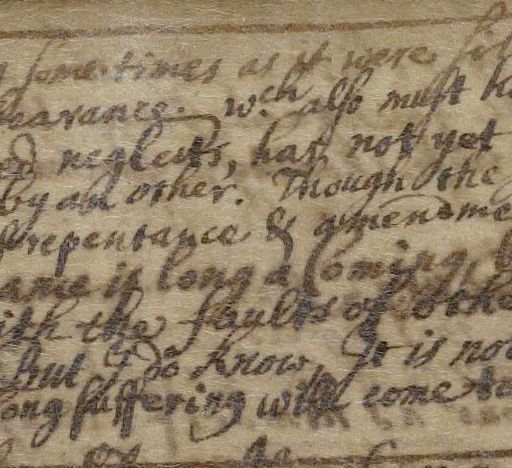 sometimes as it were
wch also must
neglects, has not yet
by an other. Though the
repentance & amendme
ame is long a Coming,
ith the faults of othe
but I do know, It is not
ong suffering will come to